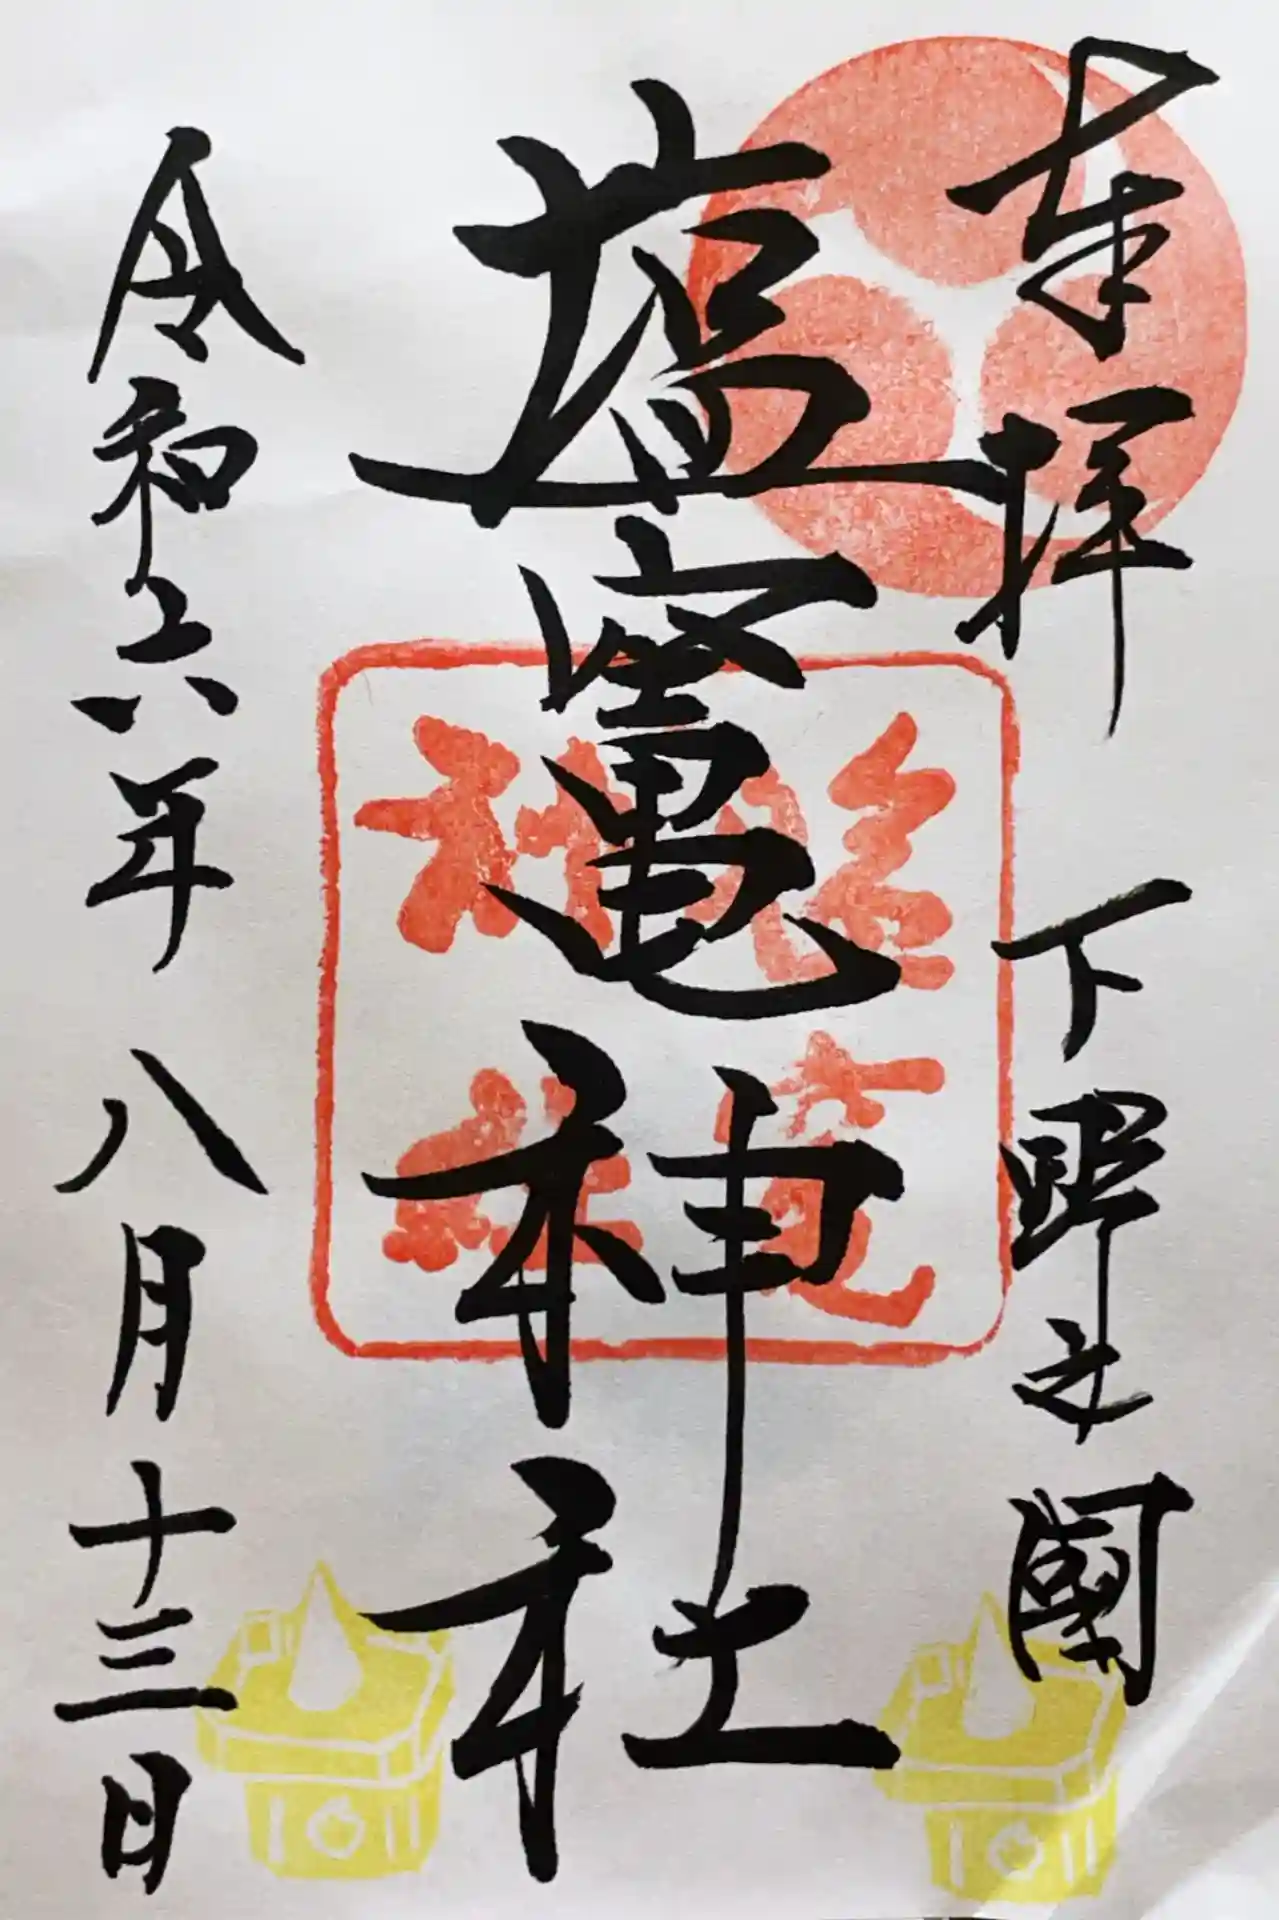 奉拝　下野之國
塩竈神社
塩竈神社
令和六年　八月十三日